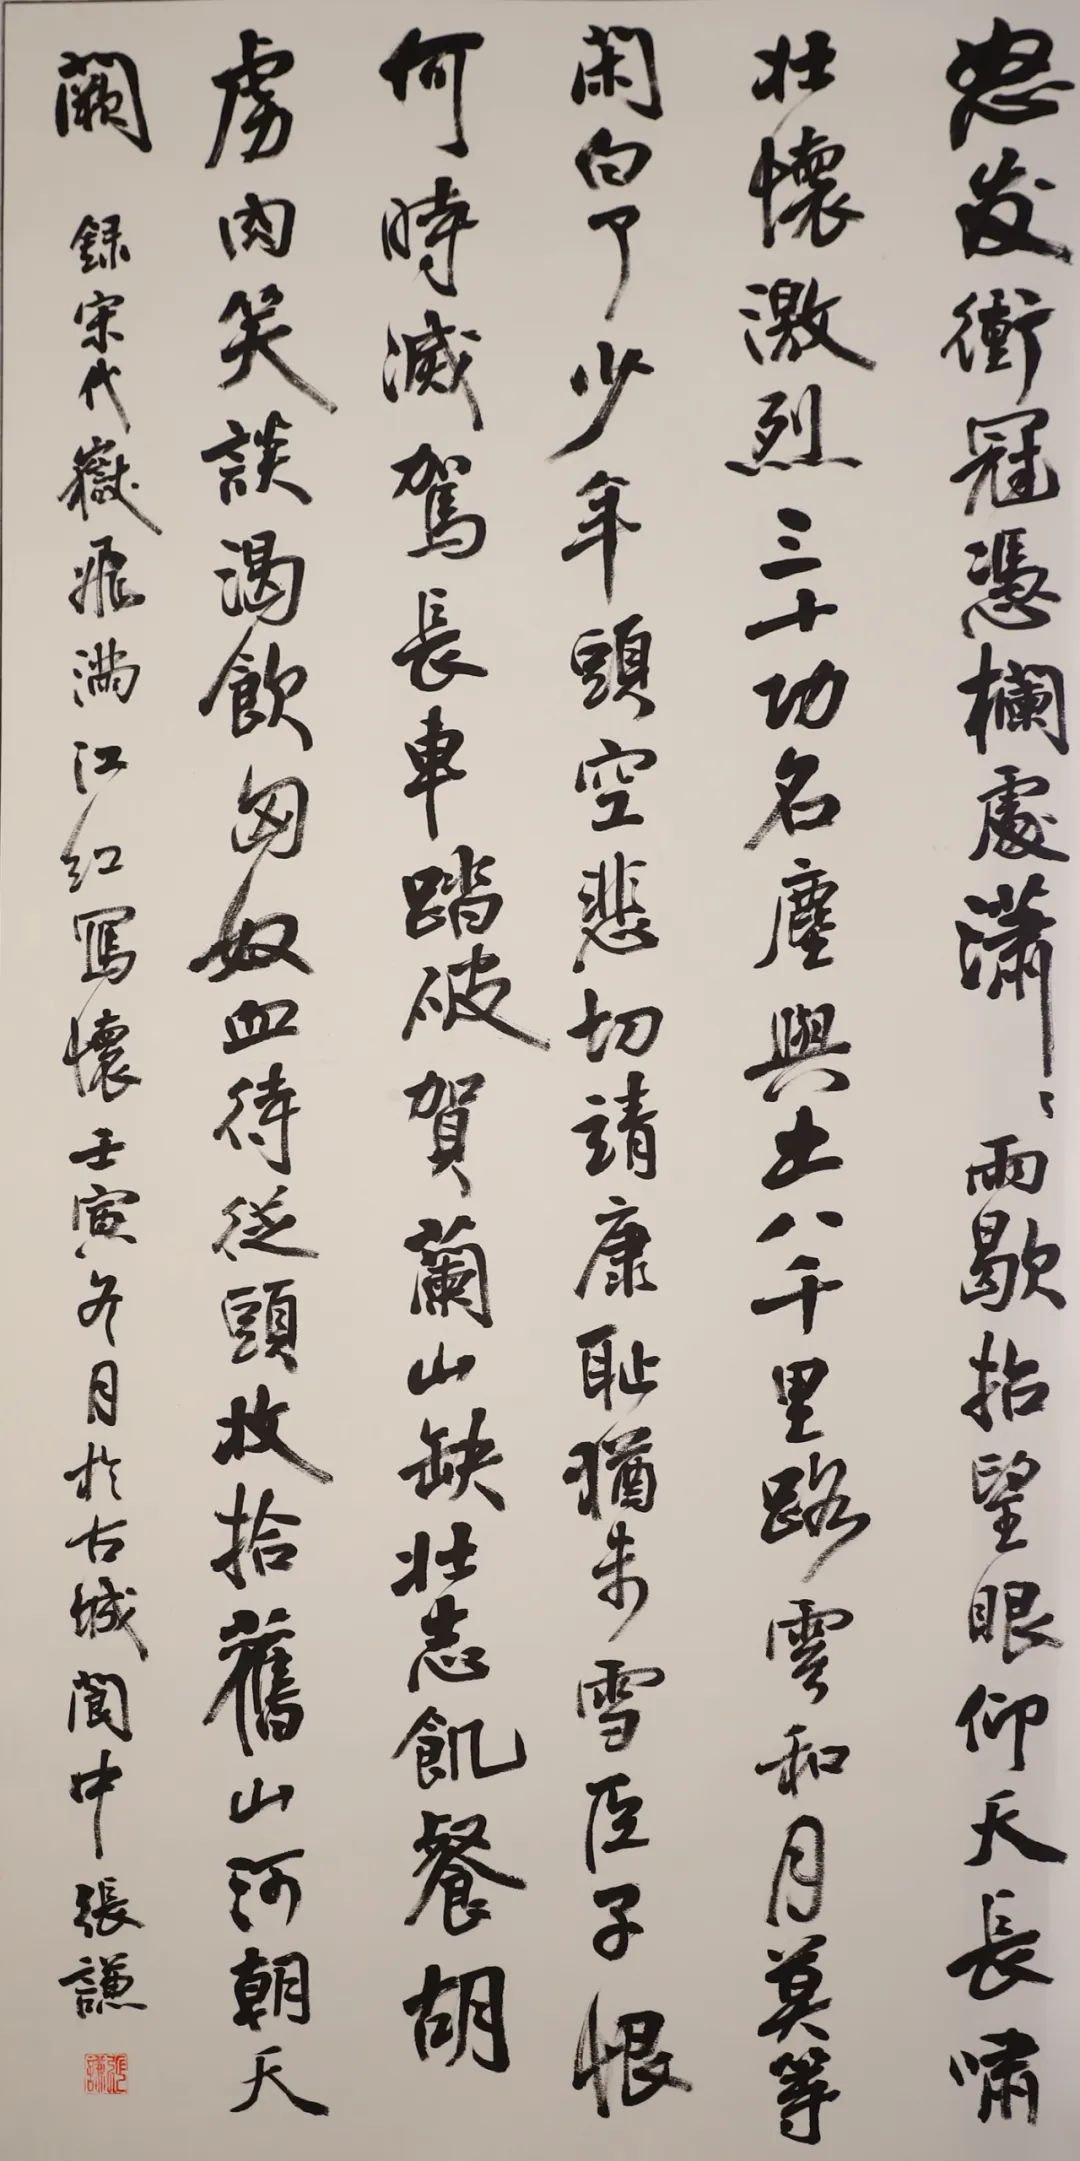 怒发衝冠憑欄處瀟〻雨歇抬望眼仰天長嘯
壯懷激烈三十功名塵與土八千里路雲和月莫等
閑白了少年頭空悲切靖康恥猶未雪臣子恨
何時滅駕長車踏破賀蘭山缺壯志飢餐胡
虜肉笑談渴飲匈奴血待從頭收拾舊山河朝天
闕 録宋代嶽飛满江红寫懷壬寅冬月於古城閬中張謙
張謙